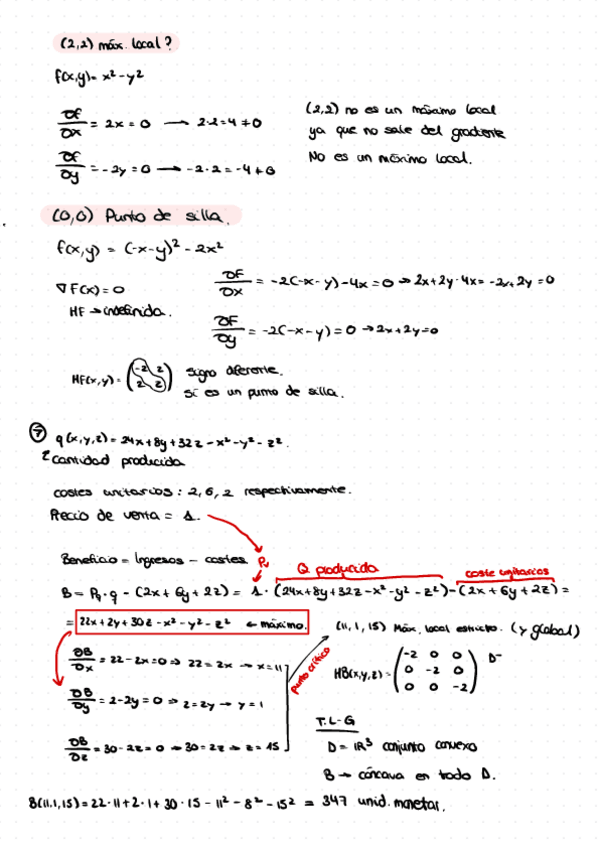 (2,2) máx. local?
f(x,y) = x² - y²
∂f/∂x = 2x = 0 → 2·2 = 4 ≠ 0
∂f/∂y = -2y = 0 → -2·2 = -4 ≠ 0
(2,2) no es un máximo local
ya que no sale del gradiente
No es un máximo local.
(0,0) Punto de silla.
f(x,y) = (-x-y)² - 2x²
∇F(x) = 0
HF → indefinida.
∂F/∂x = -2(-x-y) - 4x = 0 → 2x+2y-4x = -2x+2y = 0
∂F/∂y = -2(-x-y) = 0 → 2x+2y=0
HF(x,y) = (-2 2
2 2)
signo diferente.
sí es un punto de silla.
⑦ q(x,y,z) = 24x+8y+32z-x²-y²-z².
cantidad producida
costes unitarios: 2, 6, 2 respectivamente.
Precio de venta = 1.
Beneficio = Ingresos - costes
Pv
Q producida
coste unitarios
B = Pv · q - (2x + 6y + 2z) = 1 · (24x+8y+32z-x²-y²-z²)-(2x+6y+2z) =
= 22x+2y+30z-x²-y²-z² ← máximo.
(11,1,15) Máx. local estricto. (y global)
∂B/∂x = 22-2x=0 → 22=2x → x=11
∂B/∂y = 2-2y=0 → 2=2y → y=1
∂B/∂z = 30-2z=0 → 30=2z → z=15
punto crítico
HB(x,y,z) = (-2 0 0
0 -2 0
0 0 -2) D⁻
T.L-G
D = ℝ³ conjunto convexo
B → cóncava en todo D.
B(11,1,15) = 22·11+2·1+30·15-11²-8²-15² = 347 unid. monetar.